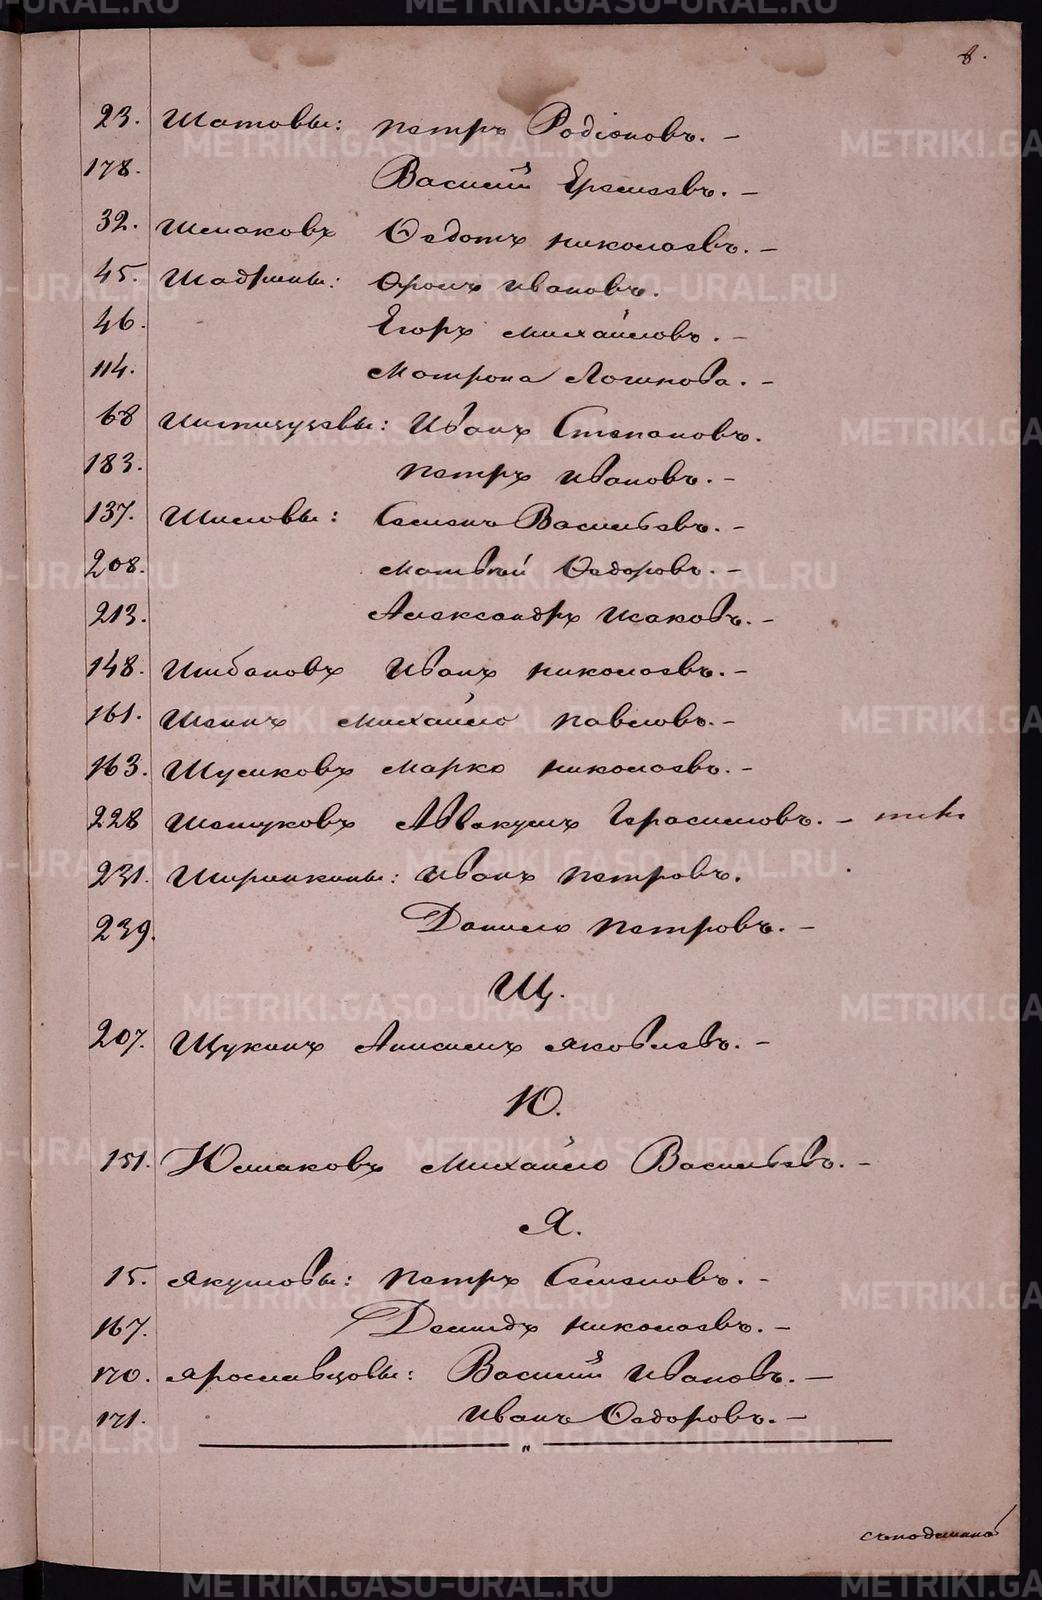 8.
23. Шатовы: Петръ Родіоновъ. –
178. Василій Ермеевъ. –
32. Шмаковъ Ѳедотъ Николаевъ. –
45. Шадрины: Фролъ Ивановъ.
46. Егоръ Михайловъ. –
114. Матрона Логинова. –
68 Иванъ Степановъ.
183. Петръ Ивановъ. –
137. Шиловы: Семенъ Васильевъ. –
208. Матвѣй Ѳедоровъ. –
213. Александръ Исаковъ. –
148. Шибановъ Иванъ Николаевъ. –
161. Шеинъ Михайло Павловъ. –
163. Шумковъ Марко Николаевъ. –
228 Шетуковъ Аввакумъ Герасимовъ. –
231. Ширинкины: Иванъ Петровъ.
239. Данило Петровъ. –
Щ.
207. Щукинъ Анисимъ Яковлевъ. –
Ю.
151. Юшаковъ Михайло Васильевъ. –
Я.
15. Якушовы: Петръ Семеновъ. –
167. Демидъ Николаевъ. –
170. Ярославцовы: Василій Ивановъ. –
171. Иванъ Ѳедоровъ. –
METRIKI.GASO-URAL.RU